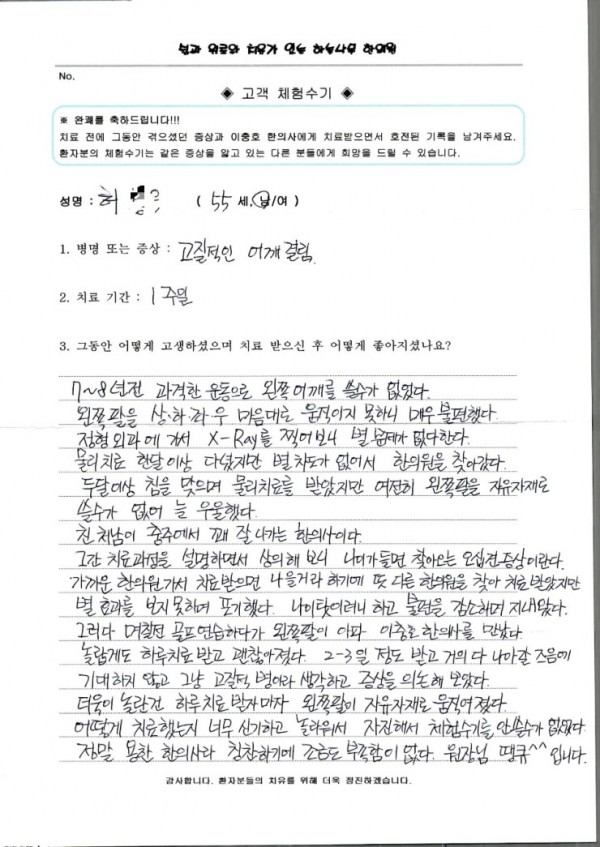 No.
◈ 고객 체험수기 ◈
※ 완쾌를 축하드립니다!!!
치료 전에 그동안 겪으셨던 증상과 이충호 한의사에게 치료받으면서 호전된 기록을 남겨주세요.
환자분의 체험수기는 같은 증상을 앓고 있는 다른 분들에게 희망을 드릴 수 있습니다.
성명 : 허 ( 55 세, 남/여 )
1. 병명 또는 증상 : 고질적인 어깨결림.
2. 치료 기간 : 1주일
3. 그동안 어떻게 고생하셨으며 치료 받으신 후 어떻게 좋아지셨나요?
7~8년전 과격한 운동으로 왼쪽어깨를 쓸수가 없었다.
왼쪽팔을 상·하·좌·우 마음대로 움직이지 못하니 매우 불편했다.
정형외과에 가서 X-Ray를 찍어보니 별 문제가 없다한다.
물리치료 한달이상 다녔지만 별차도가 없어서 한의원을 찾아갔다.
두달이상 침을 맞으며 물리치료를 받았지만 여전히 왼쪽팔을 자유자재로
쓸수가 없어 늘 우울했다.
친처남이 충주에서 꽤 잘나가는 한의사이다.
그간 치료과정을 설명하면서 상의해 보니 나이가들면 찾아오는 오십견증상이란다.
가까운 한의원가서 치료받으면 나을거라 하기에 또 다른 한의원을 찾아 치료받았지만
별 효과를 보지못하여 포기했다. 나이탓이려니 하고 불편을 감소하며 지내왔다.
그러다 며칠전 골프연습하다가 왼쪽팔이 아파 이충호한의사를 만났다.
놀랍게도 하루치료받고 괜찮아졌다. 2-3일 정도 받고 거의 다 나아갈 즈음에
기대하지 않고 그냥 고질적 병이라 생각하고 증상을 의논해 보았다.
더욱이 놀란건 하루치료받자마자 왼쪽팔이 자유자재로 움직여졌다.
어떻게 치료했는지 너무 신기하고 놀라워서 자진해서 체험수기를 안쓸수가 없었다.
정말 용한 한의사라 칭찬하기에 조금도 부족함이 없다. 원장님 땡큐^^ 입니다.
감사합니다. 환자분들의 치유를 위해 더욱 정진하겠습니다.